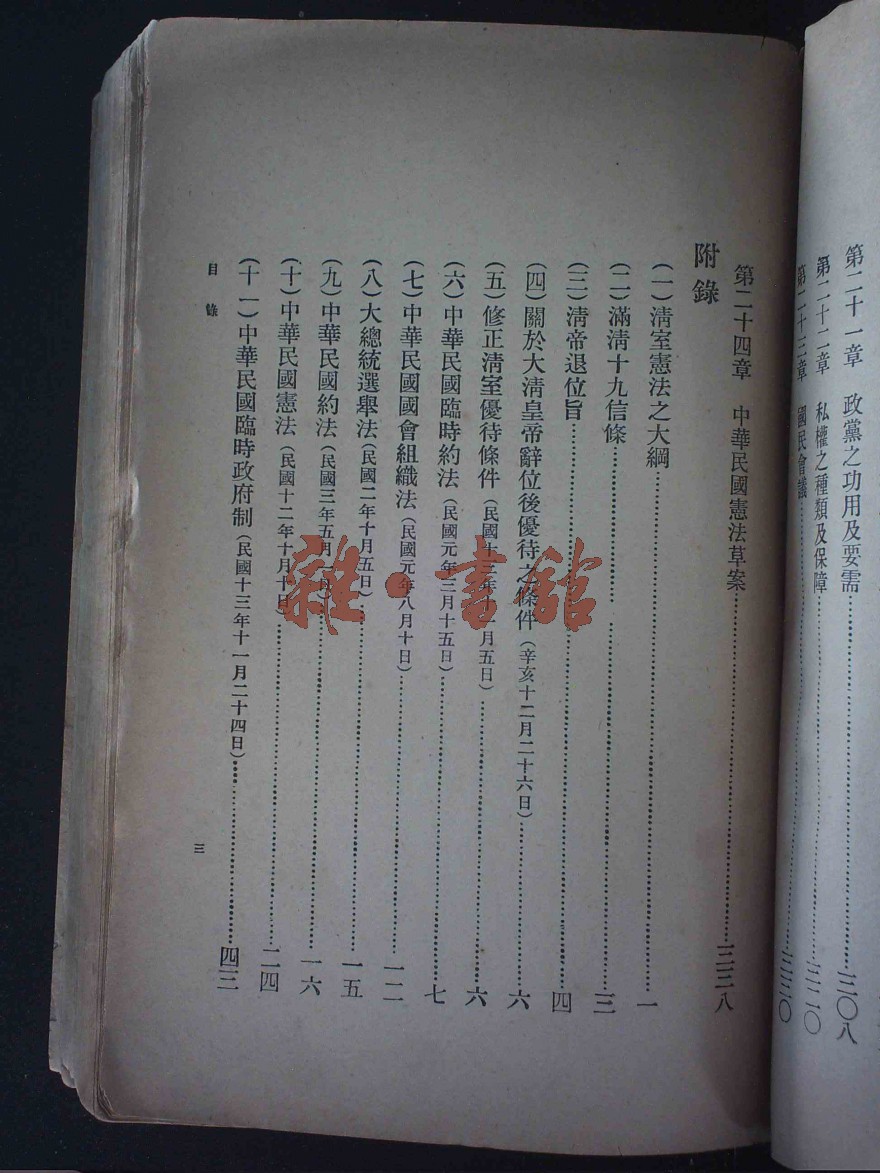 第二十一章　政黨之功用及要需……三〇八
第二十二章　私權之種類及保障……三二〇
第二十三章　國民會議……三三〇
第二十四章　中華民國憲法草案……三三八
附錄
（一）清室憲法之大綱……一
（二）滿清十九信條……三
（三）清帝退位旨……四
（四）關於大清皇帝辭位後優待之條件（辛亥十二月二十六日）……六
（五）修正清室優待條件（民國十三年十一月五日）……六
（六）中華民國臨時約法（民國元年三月十五日）……七
（七）中華民國國會組織法（民國元年八月十日）……一二
（八）大總統選舉法（民國二年十月五日）……一五
（九）中華民國約法（民國三年五月一日）……一六
（十）中華民國憲法（民國十二年十月十日）……二四
（十一）中華民國臨時政府制（民國十三年十一月二十四日）……四三
目錄
三
雜·書館